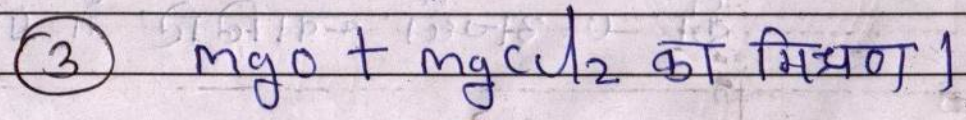 ③ mgo + mgCl2 का मिश्रण |